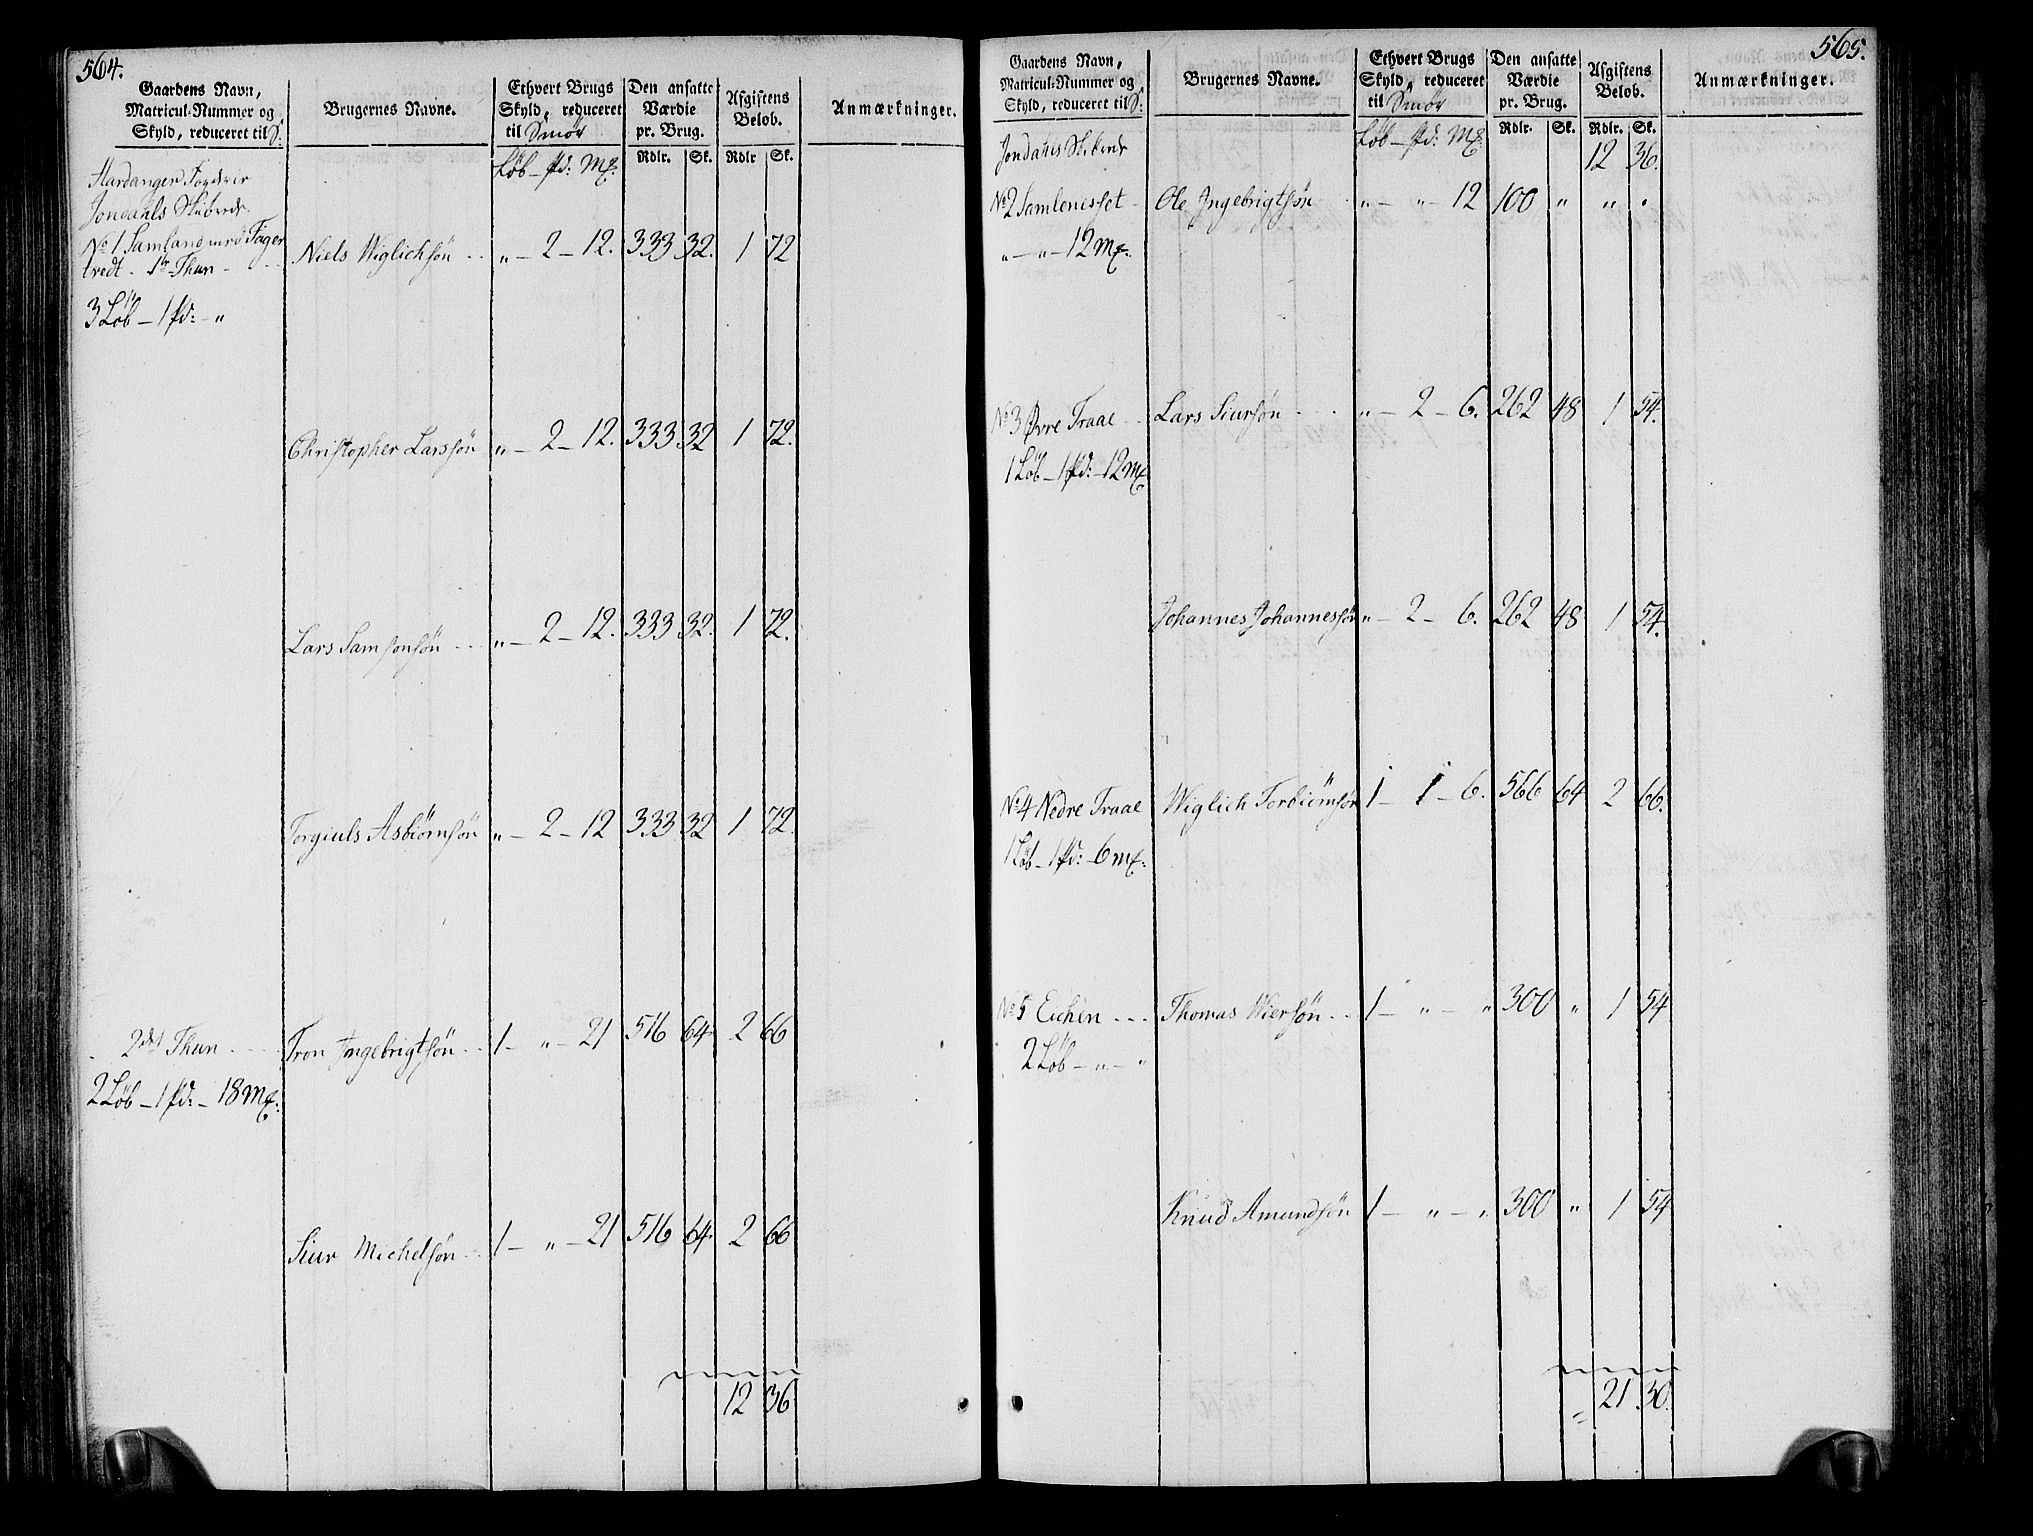 564.
Gaardens Navn, Matricul-Nummer og Skyld, reduceret til S:
Brugernes Navne.
Ethvert Brugs Skyld, reduceret til Smör
Den ansatte Værdie pr. Brug.
Afgiftens Belob.
Anmærkninger.
Løb - pd: Mg:
Rdlr. Sk. Rdlr Sk.
Hardanger
Jondahls Skibrede
No 1 Samland med Fager
tredt - 1te Thun - Niels Wiglichsön „ - 2 - 12. 333 32. 1 72
3 Löb - 1 pd: - „
Christopher Larssön „ - 2 - 12. 333 32 1 72.
Lars Samsonsön „ - 2 - 12. 333 32. 1 72.
Torgiuls Asbiörnsön „ - 2 - 12 333 32 1 72.
2det Thun Tron Ingebrigtsön 1 - „ - 21 516 64 2 66
2 Löb - 1 pd: - 18 Mg:
Siur Michelsön 1 - „ - 21 516 64 2 66
12 36
565.
Gaardens Navn, Matricul-Nummer og Skyld, reduceret til S:
Brugernes Navne.
Ethvert Brugs Skyld, reduceret til Smör
Den ansatte Værdie pr. Brug.
Afgiftens Belob.
Anmærkninger.
Rdlr. Sk. Rdlr. Sk.
Jondahls Skibrede Løb - pd: Mg: 12 36.
No 2 Samlenesset - Ole Ingebrigtsön „ - „ - 12 100 „ „ „
„ - „ - 12 Mg:
No 3 Øvre Traae Lars Siursön „ - 2 - 6. 262 48 1 54.
1 Löb - 1 pd: - 12 Mg
Johannes Johannessön „ - 2 - 6. 262 48 1 54.
No 4 Nedre Traae Wiglich Torbiörnsön 1 - 1 - 6. 566 64 2 66.
1 Löb - 1 pd: - 6 Mg:
No 5 Eichen Thomas Wiersön 1 - „ - „ 300 „ 1 54
2 Löb - „ - „
Knud Amundsön 1 - „ - „ 300 „ 1 54
21 30.